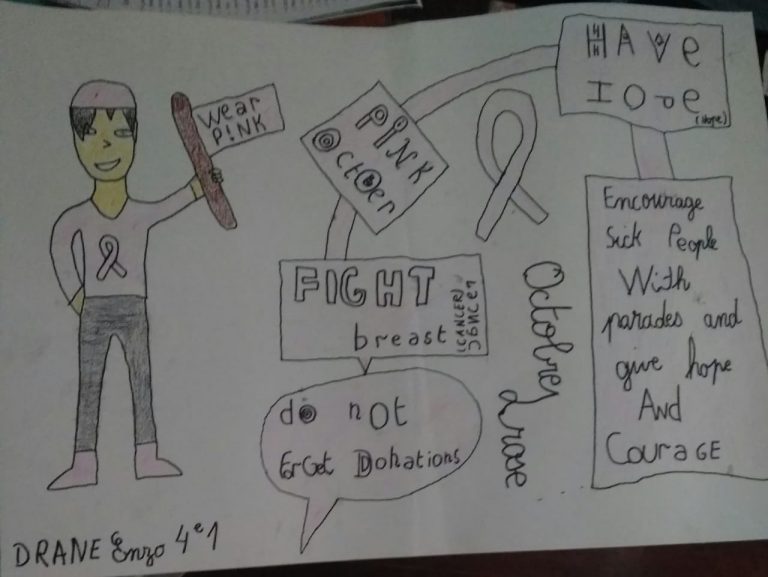 wear
P!NK
PiNK
OctOBer
HAVe
HOPe
(Hope)
FIGHT
breast
(CANCER)
do not
ForGet Donations
Octobre
rose
Encourage
Sick People
With
parades and
give hope
And
CouraGE
DRANE Enzo 4e1